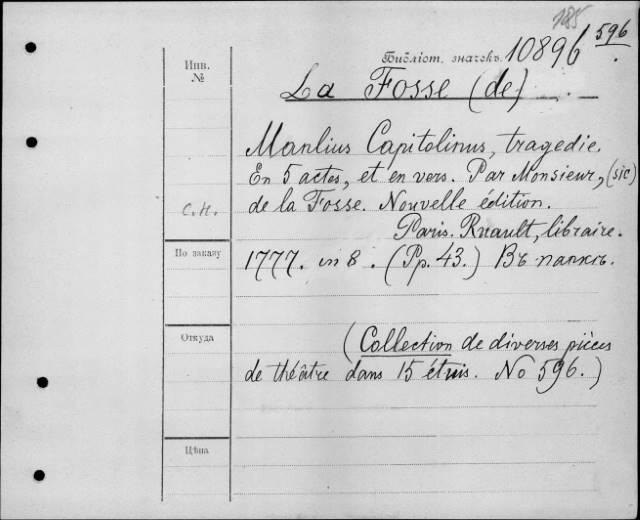 185
596
Библіот. значекъ 10896
Инв.
№
La Fosse (de)
Manlius Capitolinus, tragedie.
En 5 actes, et en vers. Par Monsieur, (sic)
de la Fosse. Nouvelle édition.
С.Н.
Paris. Ruault, libraire.
По заказу
1777. in 8. (Pp. 43.) Въ папкѣ.
Откуда
(Collection de diverses pièces
de théâtre dans 15 étuis. No 596.)
Цѣна